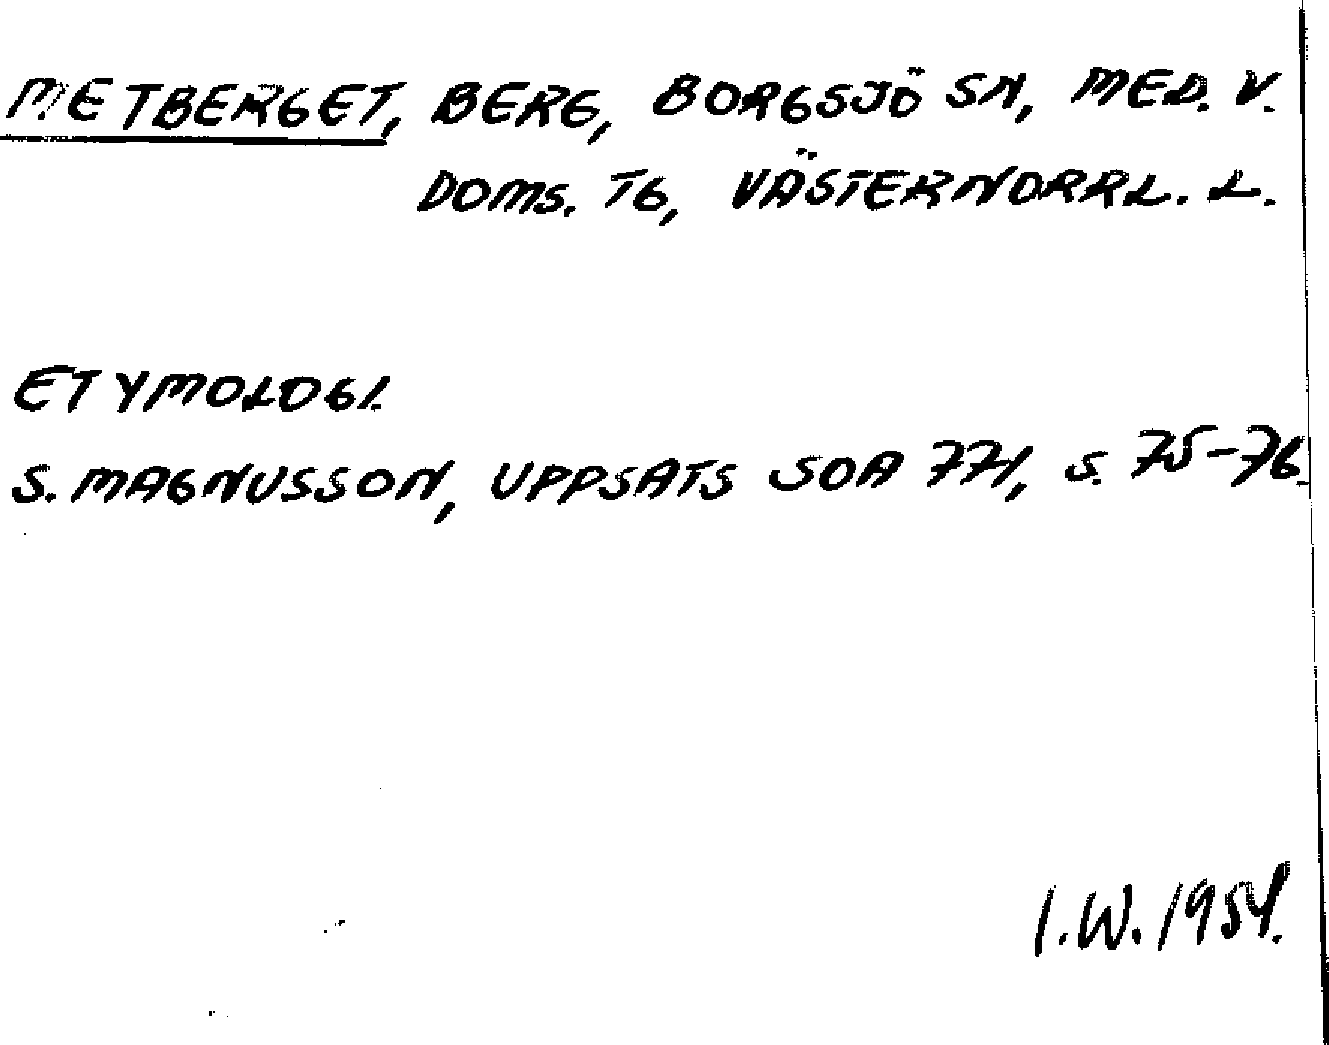 METBERGET, BERG, BORGSJÖ SN, MED. V.
DOMS. TG, VÄSTERNORRL. L.
ETYMOLOGI.
S. MAGNUSSON, UPPSATS SOA 771, S. 75-76.
I.W. 1954.